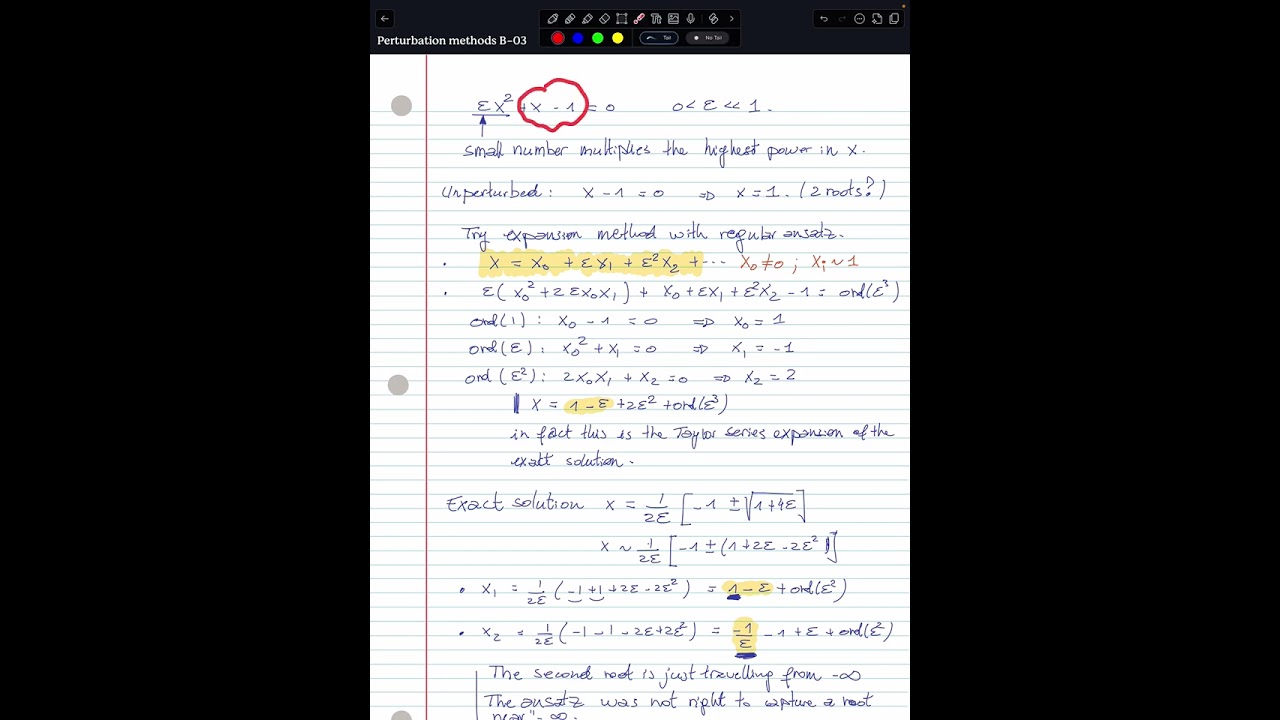 Perturbation methods B-03
Tail
No Tail
εx² + x - 1 = 0    0 < ε << 1.
small number multiplies the highest power in x.
Unperturbed: x - 1 = 0 ⇒ x = 1. (2 roots?)
Try expansion method with regular ansatz.
· x = x₀ + εx₁ + ε²x₂ + ··· x₀ ≠ 0 ; xᵢ ~ 1
· ε(x₀² + 2εx₀x₁) + x₀ + εx₁ + ε²x₂ - 1 = ord(ε³)
ord(1): x₀ - 1 = 0 ⇒ x₀ = 1
ord(ε): x₀² + x₁ = 0 ⇒ x₁ = -1
ord(ε²): 2x₀x₁ + x₂ = 0 ⇒ x₂ = 2
x = 1 - ε + 2ε² + ord(ε³)
in fact this is the Taylor series expansion of the
exact solution.
Exact solution x = 1/2ε [-1 ± √1+4ε]
x ~ 1/2ε [-1 ± (1 + 2ε - 2ε²)]
• x₁ = 1/2ε (-1 + 1 + 2ε - 2ε²) = 1 - ε + ord(ε²)
• x₂ = 1/2ε (-1 - 1 - 2ε + 2ε²) = -1/ε - 1 + ε + ord(ε²)
The second root is just travelling from -∞
The ansatz was not right to capture a root
near "-∞.